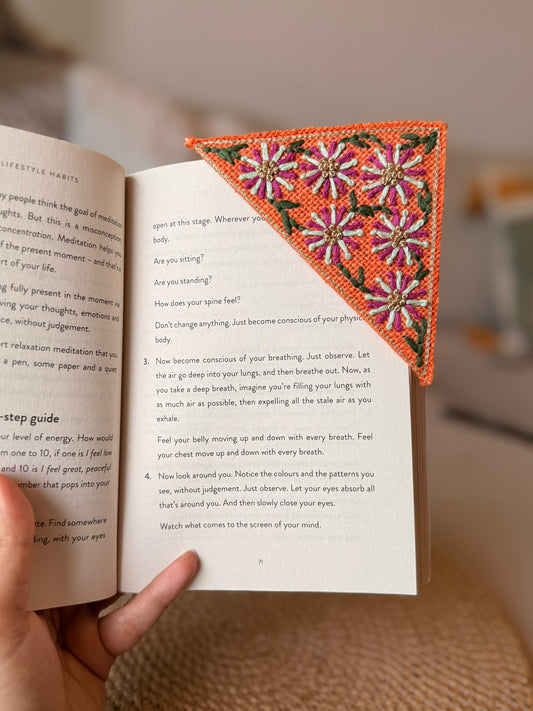 LIFESTYLE HABITS
people think the goal of meditation
But this is a misconception
concentration. Meditation helps you
of the present moment – and that's a
of your life.
fully present in the moment via
your thoughts, emotions and
without judgement.
relaxation meditation that you
a pen, some paper and a quiet
-step guide
level of energy. How would
one to 10, if one is I feel low
and 10 is I feel great, peaceful
that pops into your
Find somewhere
with your eyes
open at this stage. Wherever
body.
Are you sitting?
Are you standing?
How does your spine feel?
Don't change anything. Just become conscious of your
body.
3. Now become conscious of your breathing. Just observe. Let
the air go deep into your lungs, and then breathe out. Now, as
you take a deep breath, imagine you're filling your lungs with
as much air as possible, then expelling all the stale air as you
exhale.
Feel your belly moving up and down with every breath. Feel
your chest move up and down with every breath.
4. Now look around you. Notice the colours and the patterns you
see, without judgement. Just observe. Let your eyes absorb all
that's around you. And then slowly close your eyes.
Watch what comes to the screen of your mind.
71